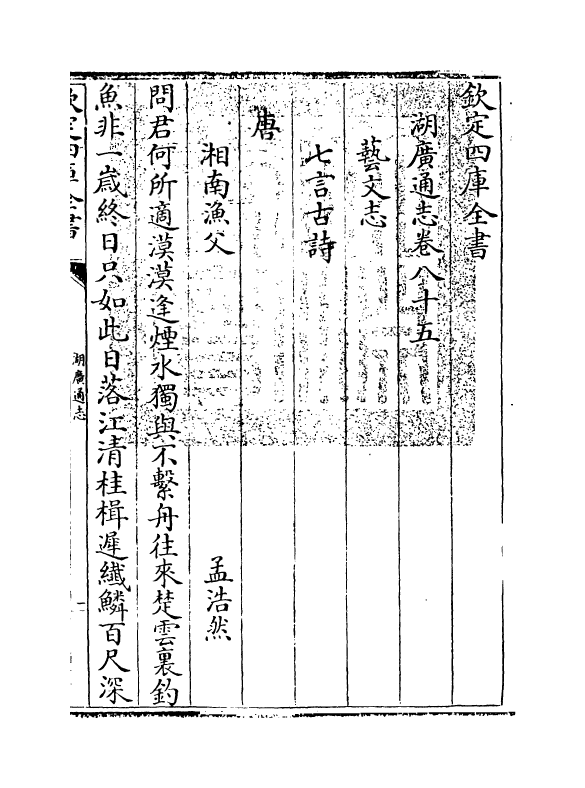 欽定四庫全書
湖廣通志卷八十五
藝文志
七言古詩
唐
湘南漁父 孟浩然
問君何所適漠漠逢煙水獨與不繫舟往來楚雲裏釣
魚非一歲終日只如此日落江清桂楫遲纖鱗百尺深
欽定四庫全書
湖廣通志
一